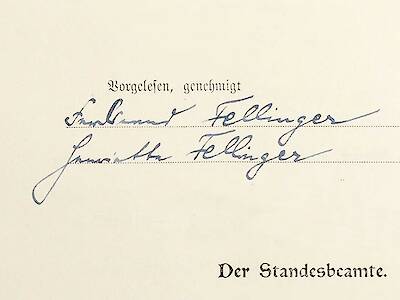 Vorgelesen, genehmigt
Ferdinand Fellinger
Henriette Fellinger
Der Standesbeamte.